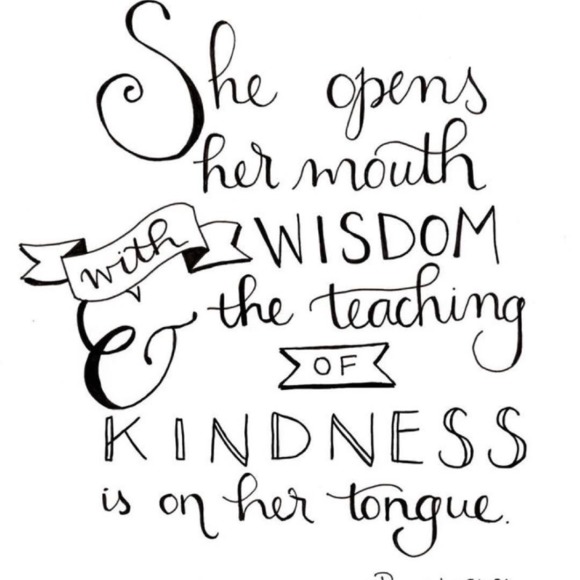 She opens
her mouth
with WISDOM
& the teaching
OF
KINDNESS
is on her tongue.